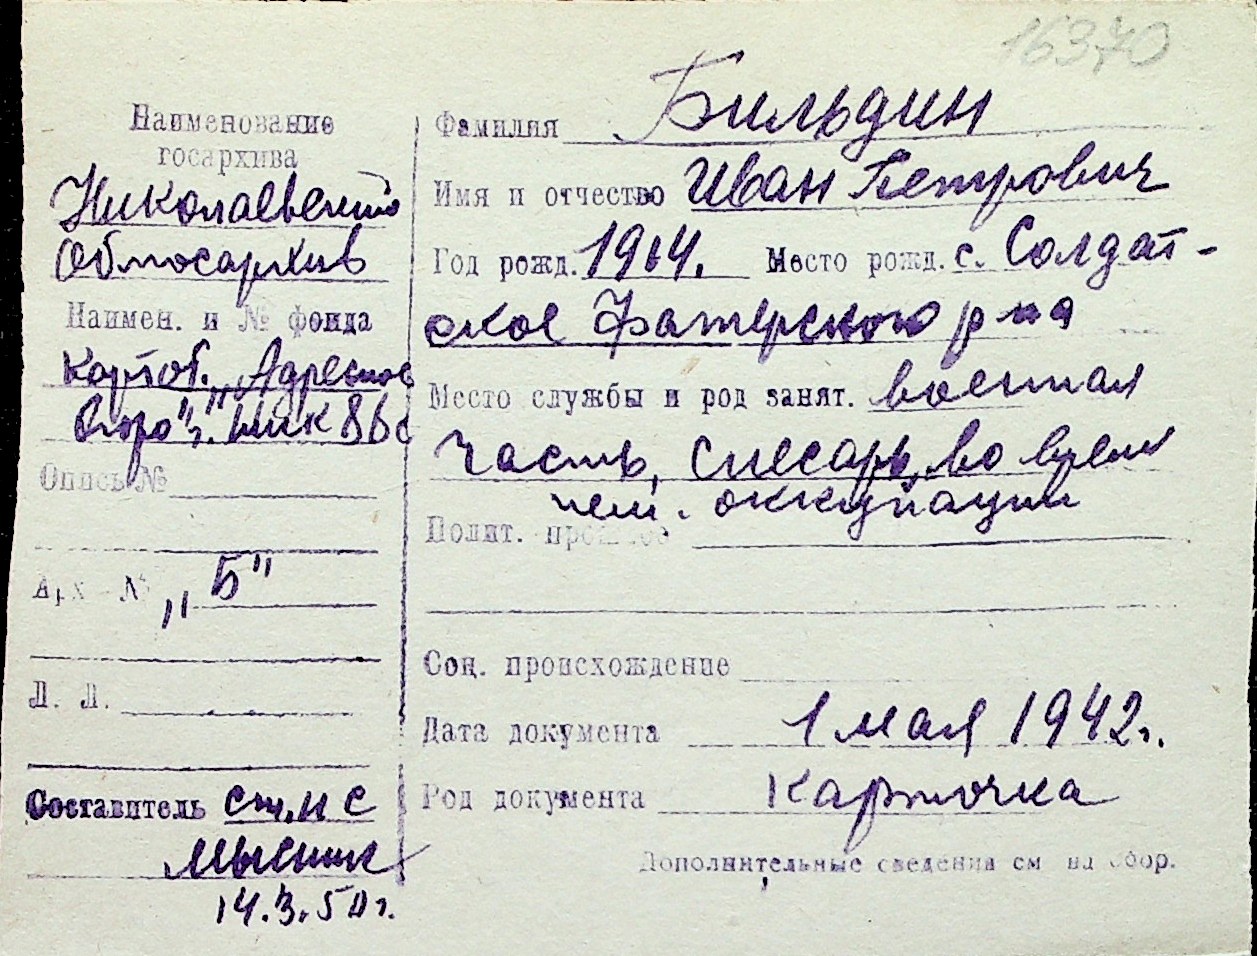 16370
Наименование
госархива
Николаевский
Облгосархив
Наимен. и № фонда
Картот. "Адресное
бюро" г.
Опись №
Арх №
"Б"
Л. Л.
Составитель ст. н с
14.3.50 г.
Фамилия Бильдин
Имя и отчество Иван Петрович
Год рожд. 1914. Место рожд. с. Солдат-
ское Фатерского р на
Место службы и род занят. военная
часть, слесарь, во время
нем. оккупации
Полит. прошлое
Соц. происхождение
Дата документа 1 мая 1942 г.
Род документа карточка
Дополнительные сведения см на обор.